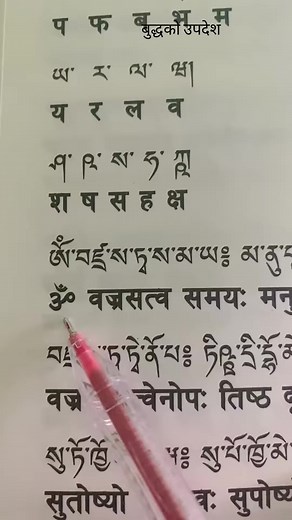 प फ ब भ म
बुद्धको उपदेश
ཡ་ ར་ ལ་ ཝ།
य र ल व
ཤ་ ཥ་ ས་ ཧ་ ཀྵ
श ष स ह क्ष
ༀ་བཛྲ་ས་ཏྭ་ས་མ་ཡཿ མ་ནུ
ॐ वज्रसत्व समयः मनु
ཏྭ་ཏྭེ་ནོ་པཿ ཏིཥྛ་དྲྀ་ཌྷོ་མེ
वज्र चेनोपः तिष्ठ
སུ་ཏོ་ཁྱོ སུ་པོ་ཁྱོ་མེ
सुतोष्यो वः सुपोष्यो